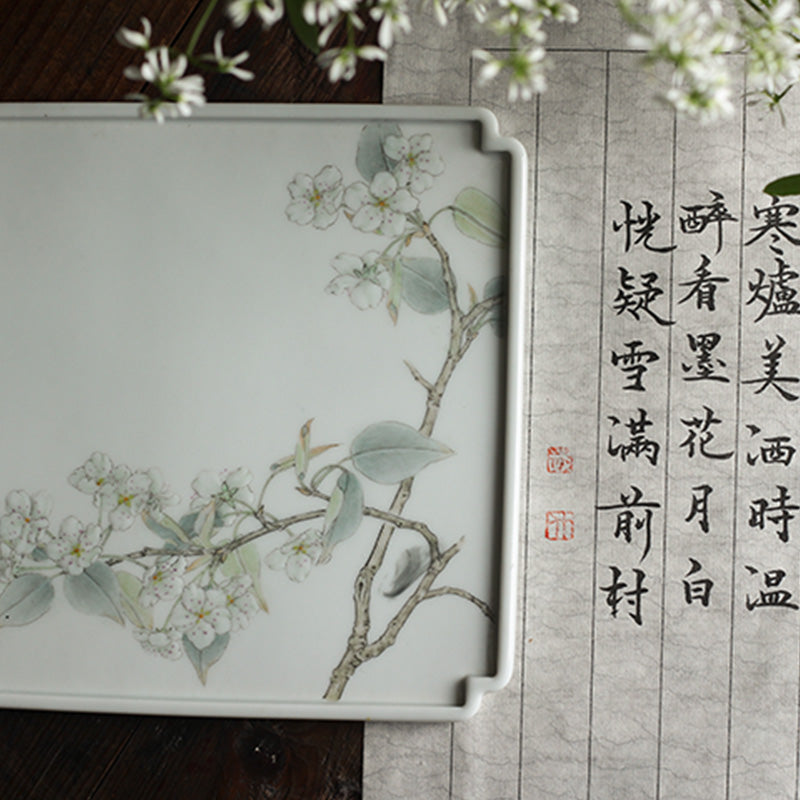 寒爐美酒時温
醉看墨花月白
恍疑雪滿前村